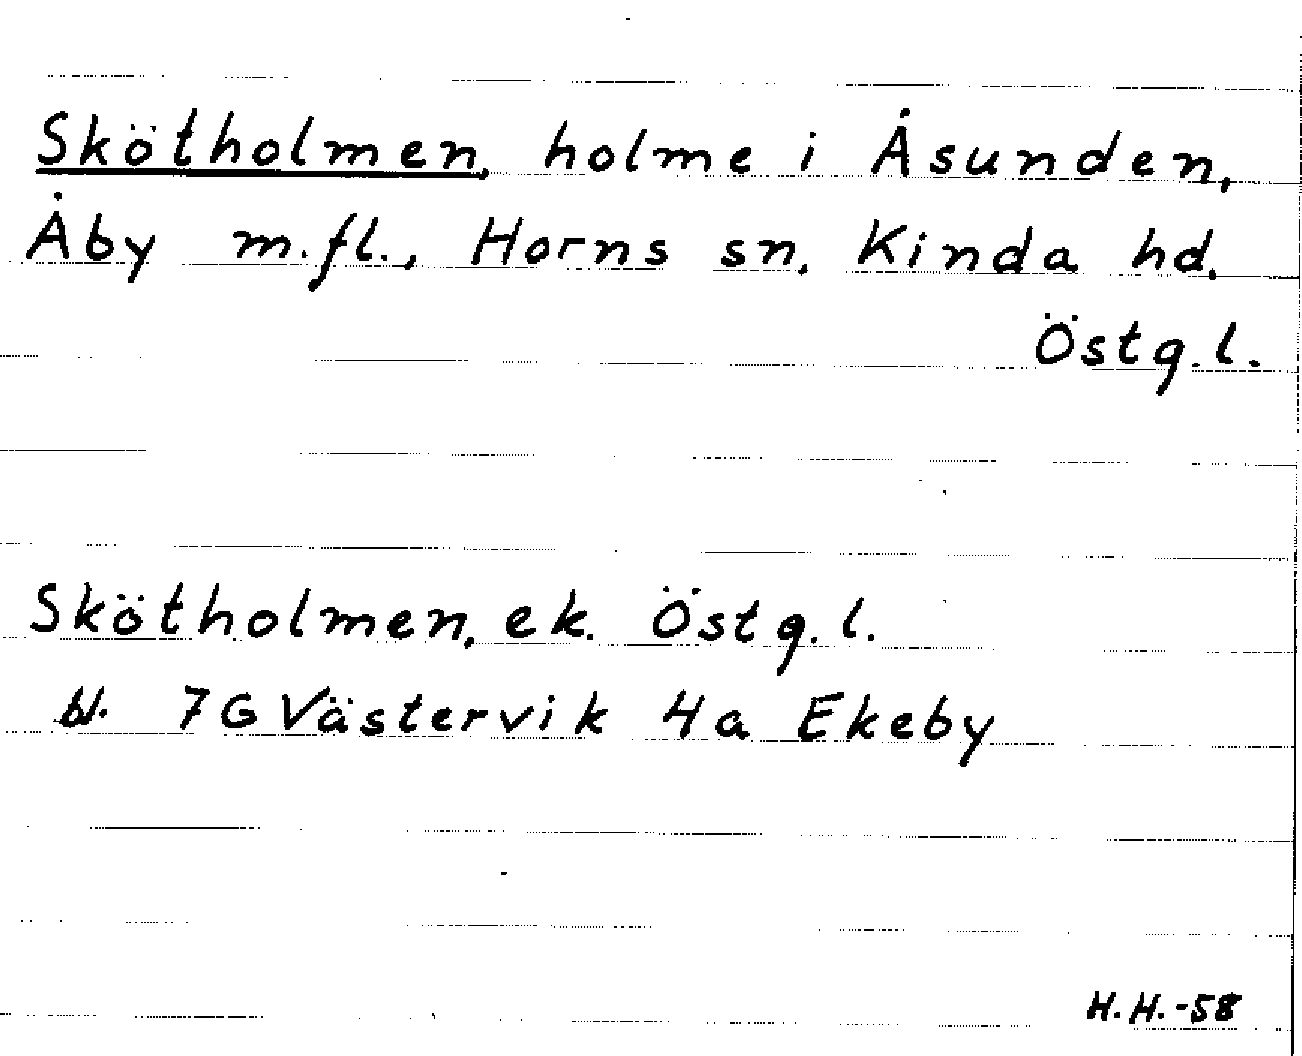 Skötholmen, holme i Åsunden,
Åby m.fl., Horns sn, Kinda hd,
Östg.l.
Skötholmen, ek. Östg.l.
bl. 7G Västervik 4a Ekeby
H.H.-58